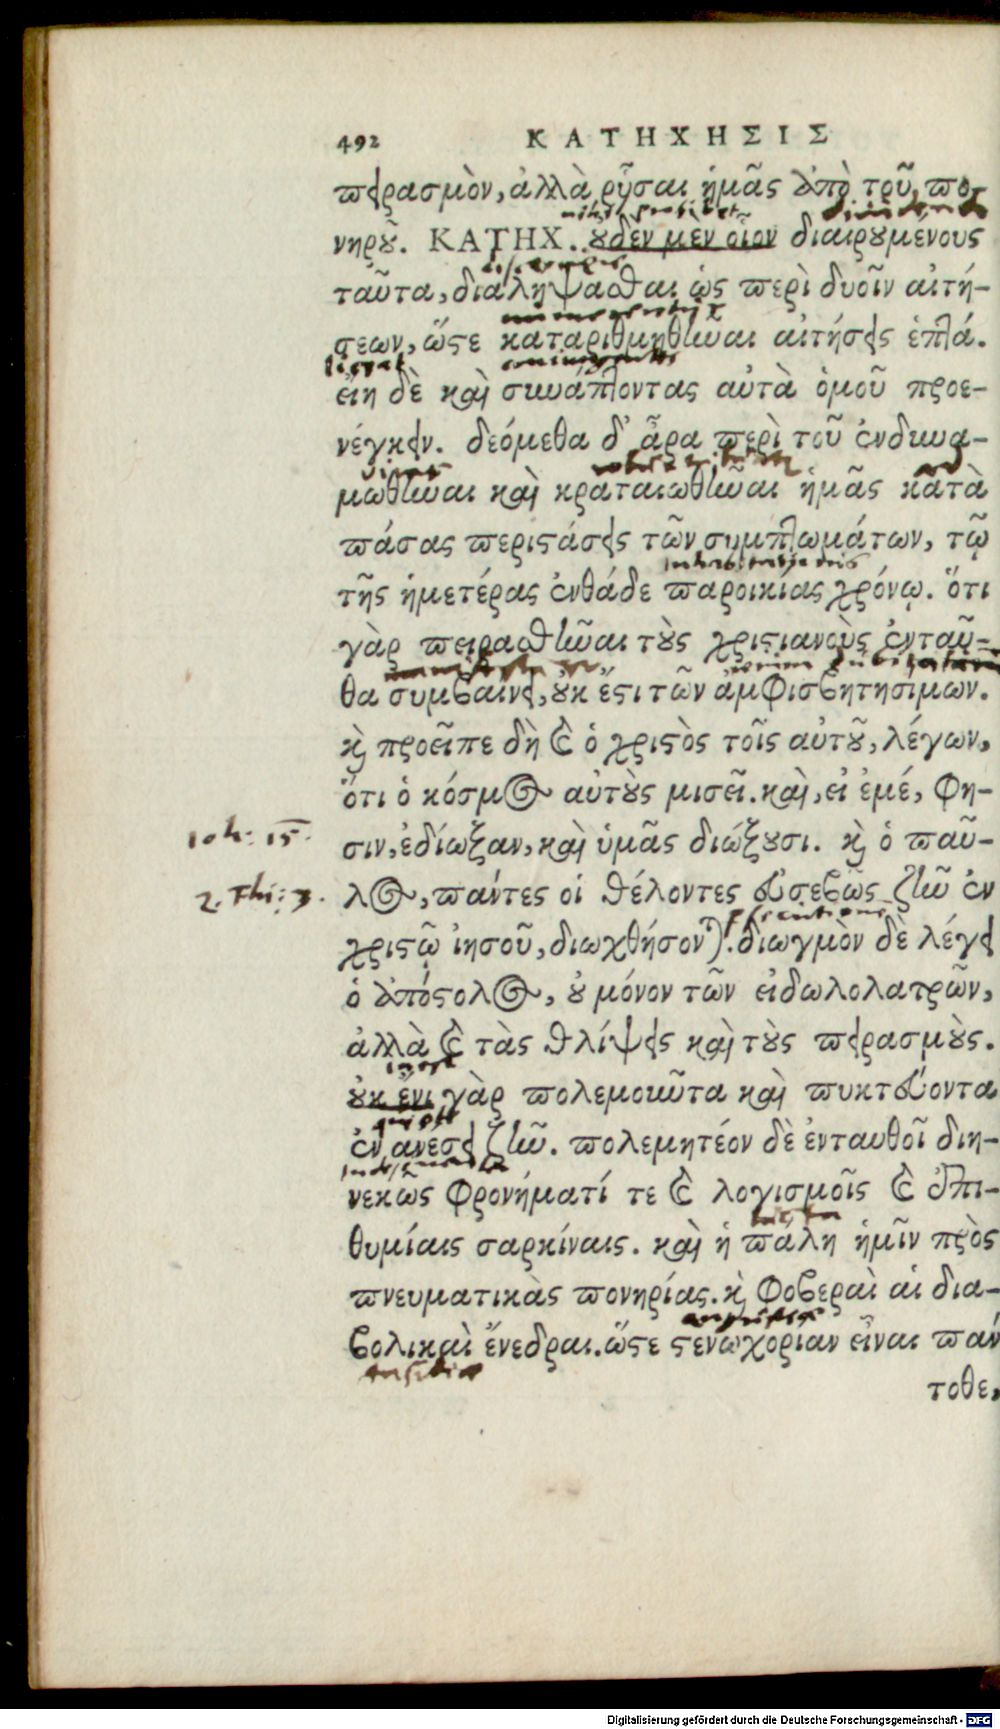 492 ΚΑΤΗΧΗΣΙΣ
πειρασμὸν, ἀλλὰ ῥῦσαι ἡμᾶς ἀπὸ τοῦ πο-
νηροῦ. ΚΑΤΗΧ. οὐδεν μεν οἷον διαιρουμένους
ταῦτα, διαληψασθαι ὡς περὶ δυοῖν αἰτή-
σεων, ὥστε καταριθμηθῆναι αἰτήσεις ἑπτά.
εἴη δὲ καὶ συνάπτοντας αὐτὰ ὁμοῦ προε-
νέγκειν. δεόμεθα δ' ἆρα περὶ τοῦ ἐνδυνα-
μωθῆναι καὶ κραταιωθῆναι ἡμᾶς κατὰ
πάσας περιστάσεις τῶν συμπτωμάτων, τῷ
τῆς ἡμετέρας ἐνθάδε παροικίας χρόνῳ. ὅτι
γὰρ πειρασθῆναι τοὺς χριστιανοὺς ἐνταῦ-
θα συμβαίνει, οὐκ ἔστι τῶν ἀμφισβητησίμων.
καὶ προεῖπε δὴ καὶ ὁ χριστὸς τοῖς αὐτοῦ, λέγων,
ὅτι ὁ κόσμος αὐτοὺς μισεῖ. καὶ, εἰ ἐμέ, φη-
Ioh: 15. σιν, ἐδίωξαν, καὶ ὑμᾶς διώξουσι. καὶ ὁ παῦ-
2. Thi: 3. λος, πάντες οἱ θέλοντες εὐσεβῶς ζῆν ἐν
χριστῷ ἰησοῦ, διωχθήσονται. διωγμὸν δὲ λέγει
ὁ ἀπόστολος, οὐ μόνον τῶν εἰδωλολατρῶν,
ἀλλὰ καὶ τὰς θλίψεις καὶ τοὺς πειρασμοὺς.
οὐκ ἔνι γὰρ πολεμοῦντα καὶ πυκτεύοντα
ἐν ανεσει ζῆν. πολεμητέον δὲ ἐνταυθοῖ διη-
νεκῶς φρονήματί τε καὶ λογισμοῖς καὶ ἐπι-
θυμίαις σαρκίναις. καὶ ἡ πάλη ἡμῖν πρὸς
πνευματικὰς πονηρίας. καὶ φοβεραὶ αἱ δια-
βολικαὶ ἔνεδραι. ὥστε στενωχοριαν εἶναι παν
τοθε,
Digitalisierung gefördert durch die Deutsche Forschungsgemeinschaft - DFG